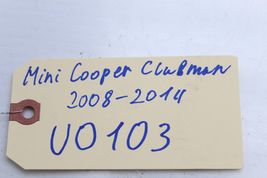 Mini Cooper Clubman
2008-2014
U0103